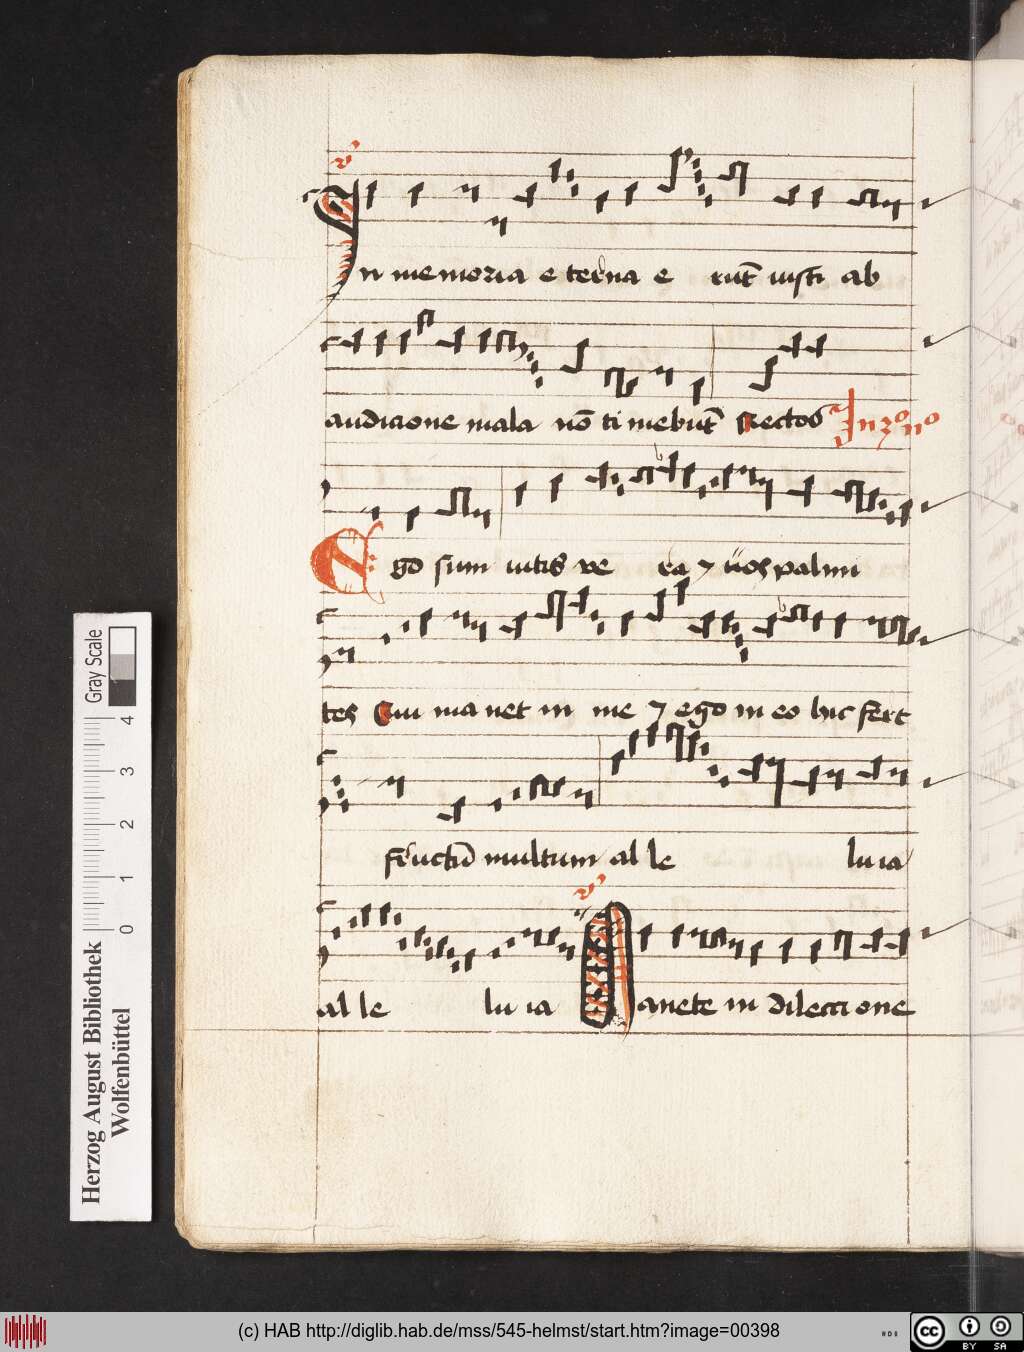 v
In memoria eterna e runt iusti ab
audicione mala nō timebūt Rectos In 3o no
Ego sum vitis ve ra ⁊ uos palmi
tes Qui manet in me ⁊ ego in eo hic fert
fructū multum al le lu ia
v
al le lu ia Manete in dileccione
Gray Scale
4
3
2
1
0
Herzog August Bibliothek
Wolfenbüttel
(c) HAB http://diglib.hab.de/mss/545-helmst/start.htm?image=00398
cc BY SA